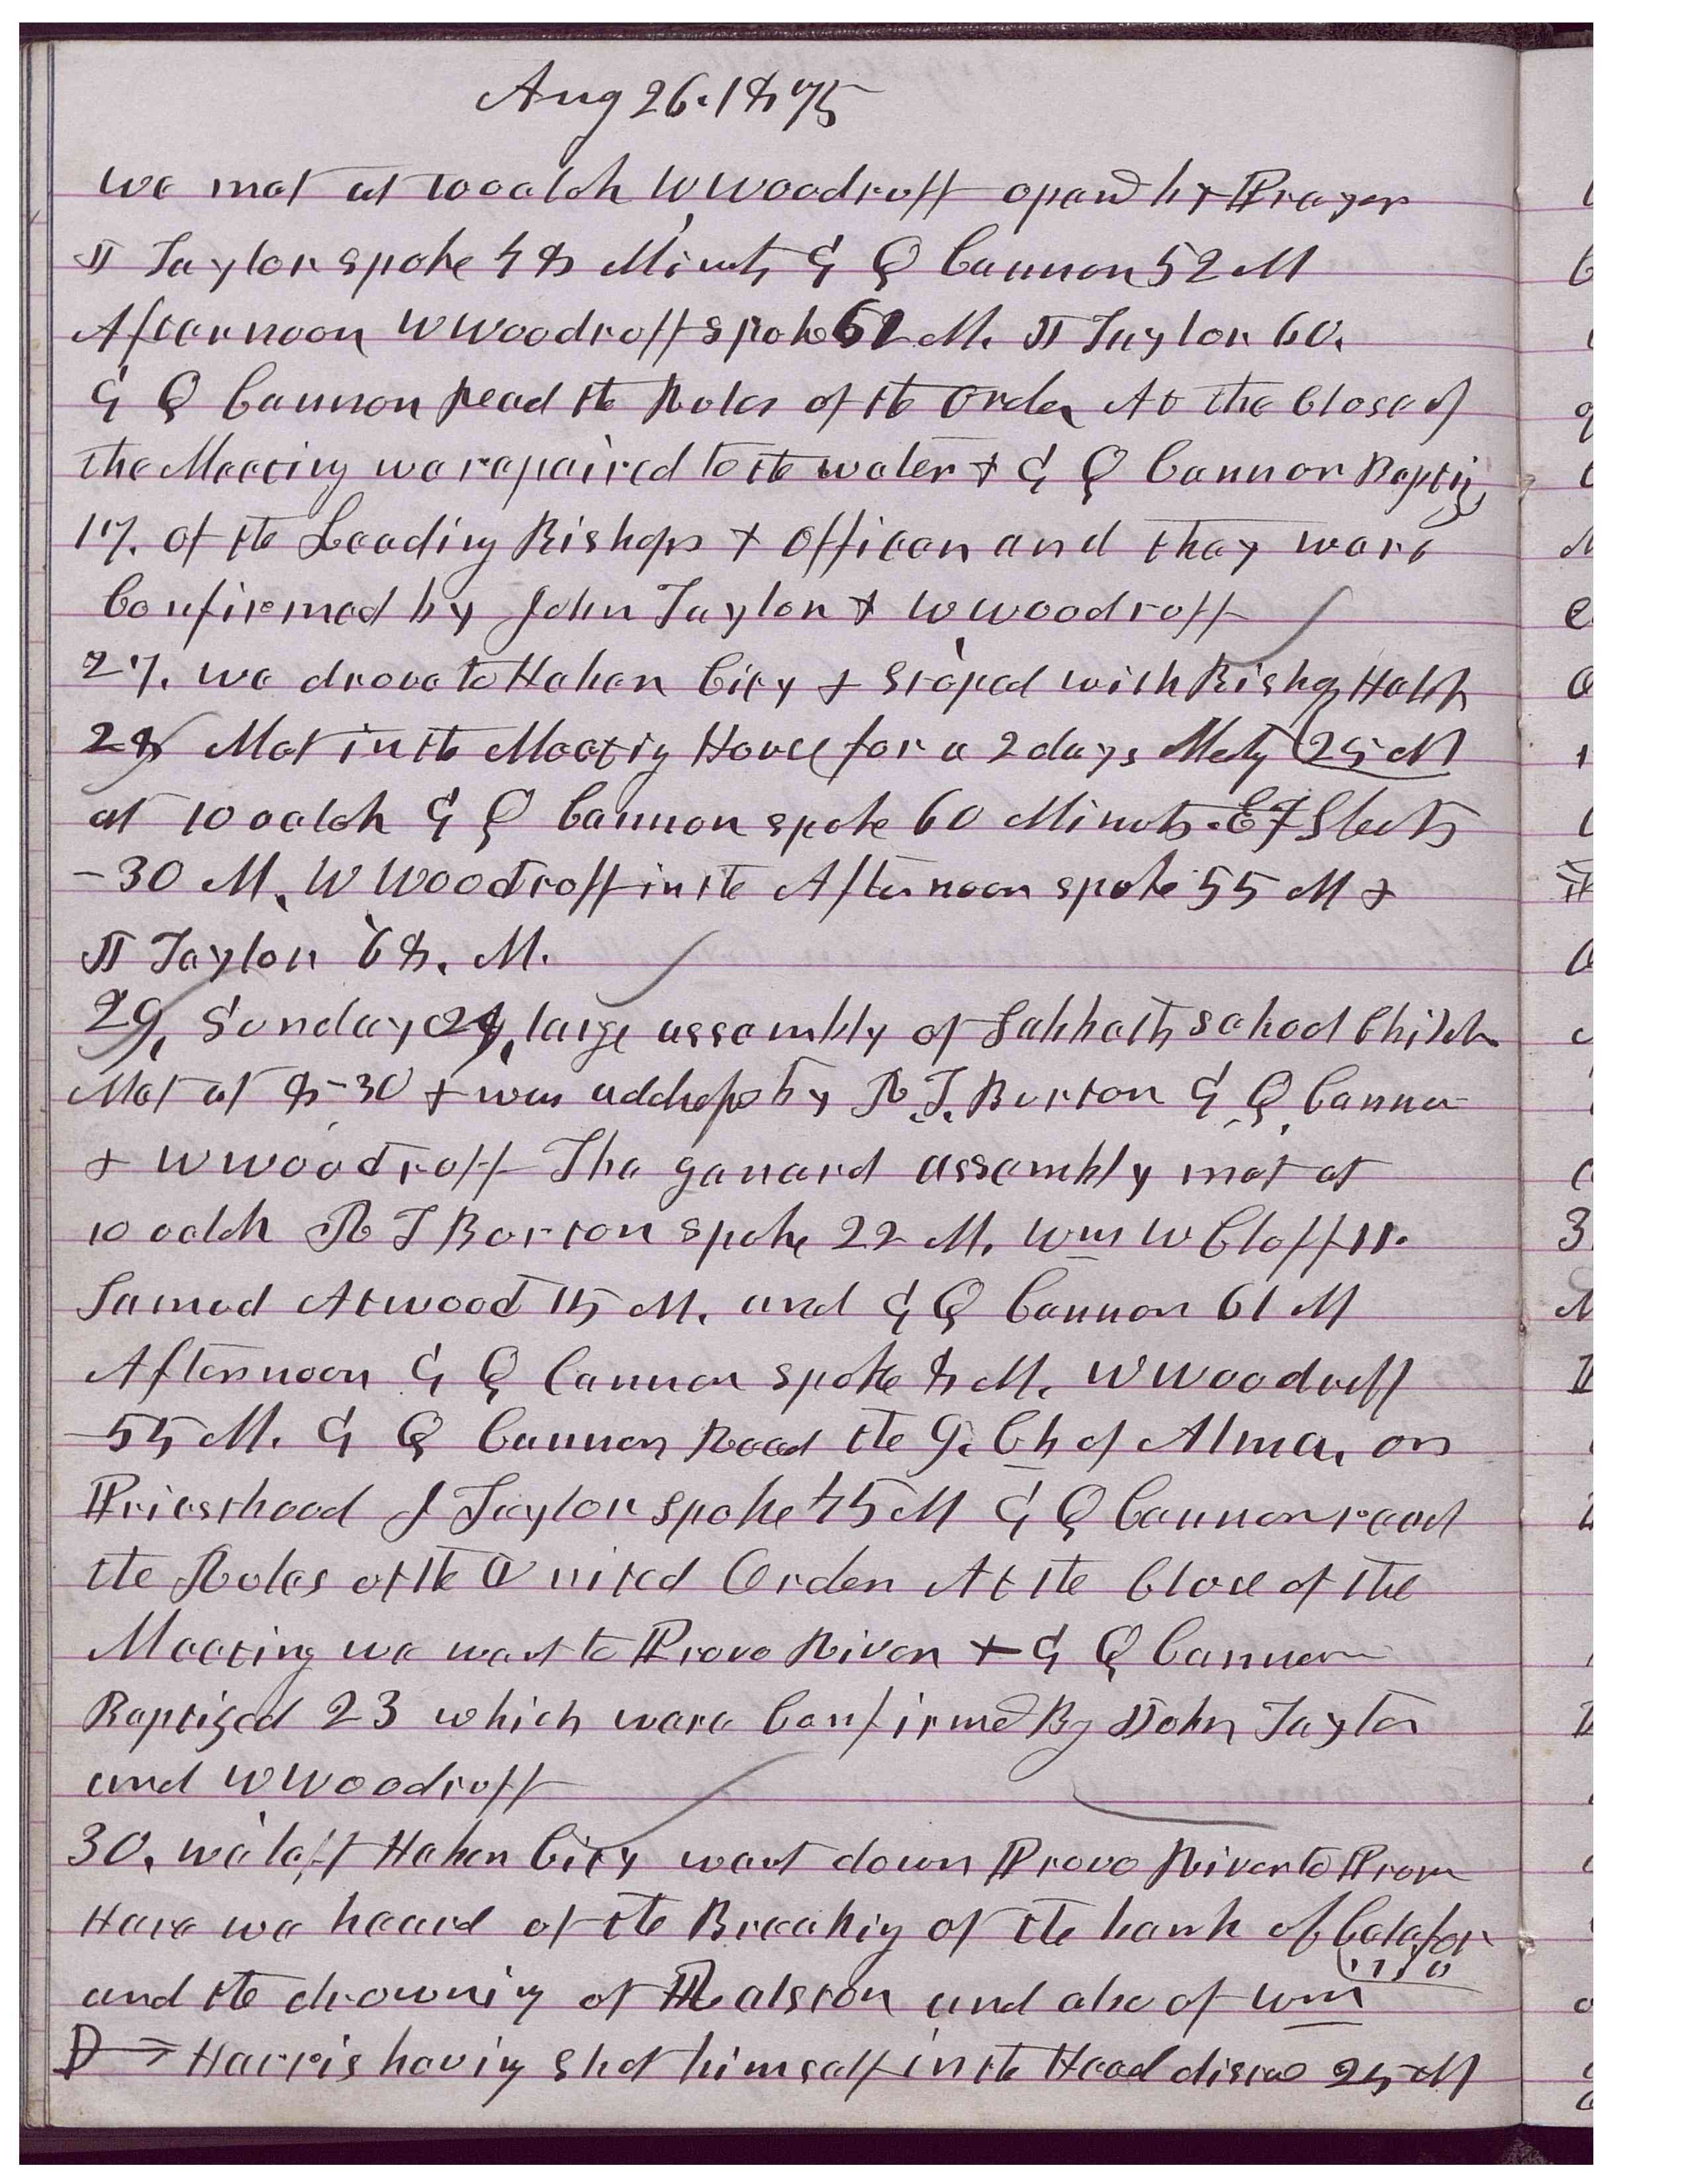 Aug 26. 1875
we met at 10 oclok W Woodruff opend by Prayer
J Taylor spoke 48 Minuts G Q Cannon 52 M
Afternoon W Woodruff spoke 61 M. J Taylor 60.
G Q Cannon Read the Rules of the Order At the Close of
the Meeting we repaired to the water & G Q Cannon Baptiz
17. of the Leading Bishops & Officers and they ware
Confirmed by John Taylor & W Woodruff
27. we drove to Heber City & Stoped with Bishop Hatch
28 Met in the Meeting House for a 2 days Meeting 25 M
at 10 oclok G Q Cannon spoke 60 Minuts. E F Sheets
-30 M. W Woodruff in the Afternoon spoke 55 M &
J Taylor 68. M.
29. Sunday large assembly of Sabbath School Childn
Met at 8-30 & was addressed by R. T. Burton G Q Cannon
& W Woodruff The generd assembly met at
10 oclok R T Burton spoke 22 M. Wm W Cluff 11.
Samuel Atwood 15 M. and G Q Cannon 61 M
Afternoon G Q Cannon spoke 8 M. W Woodruff
55 M. G Q Cannon Read the 9. Ch of Alma, on
Priesthood J Taylor spoke 45 M G Q Cannon read
the Rules of the United Order At the Close of the
Meeting we went to Provo River & G Q Cannon
Baptized 23 which ware Confirmed By John Taylor
and W Woodruff
30. we left Heber City went down Provo River to Provo
Here we heard of the Breaking of the bank of Califor
nia
and the drowning of Ralston and also of Wm
D Harris having shot himself in the Head distance 25 M